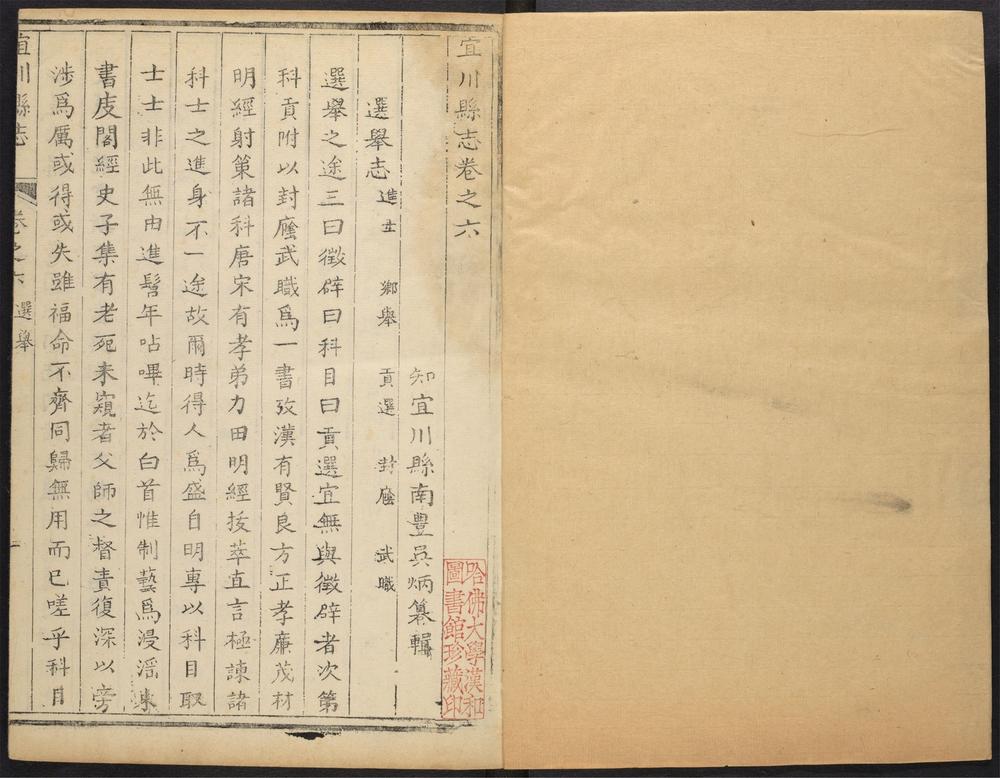 宜川縣志卷之六
知宜川縣南豊吳炳纂輯
選舉志 進士 鄉舉 貢選 封廕 武職
選舉之途三曰徵辟曰科目曰貢選宜無與徵辟者次第
科貢附以封廕武職爲一書攷漢有賢良方正孝廉茂材
明經射策諸科唐宋有孝弟力田明經拔萃直言極諫諸
科士之進身不一途故爾時得人爲盛自明專以科目取
士士非此無由進髫年呫嗶迄於白首惟制藝爲浸淫東
書庋閣經史子集有老死未窺者父師之督責復深以旁
涉爲厲或得或失雖福命不齊同歸無用而已嗟乎科目
宜川縣志 卷之六 選舉 一
哈佛大學漢和
圖書館珍藏印